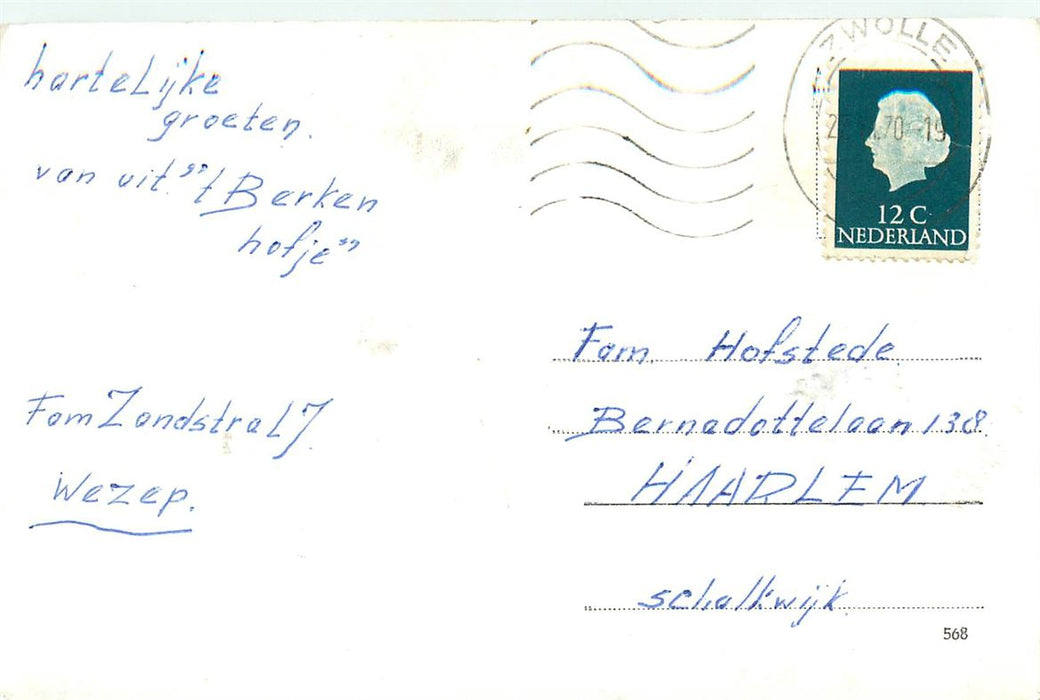 harteLijke
groeten.
van uit "'t Berken
hofje"
Fam Zandstra
Wezep.
ZWOLLE
70 -19
12 C
NEDERLAND
Fam. Hofstede
Bernadottelaan 138
HAARLEM
schalkwijk.
568